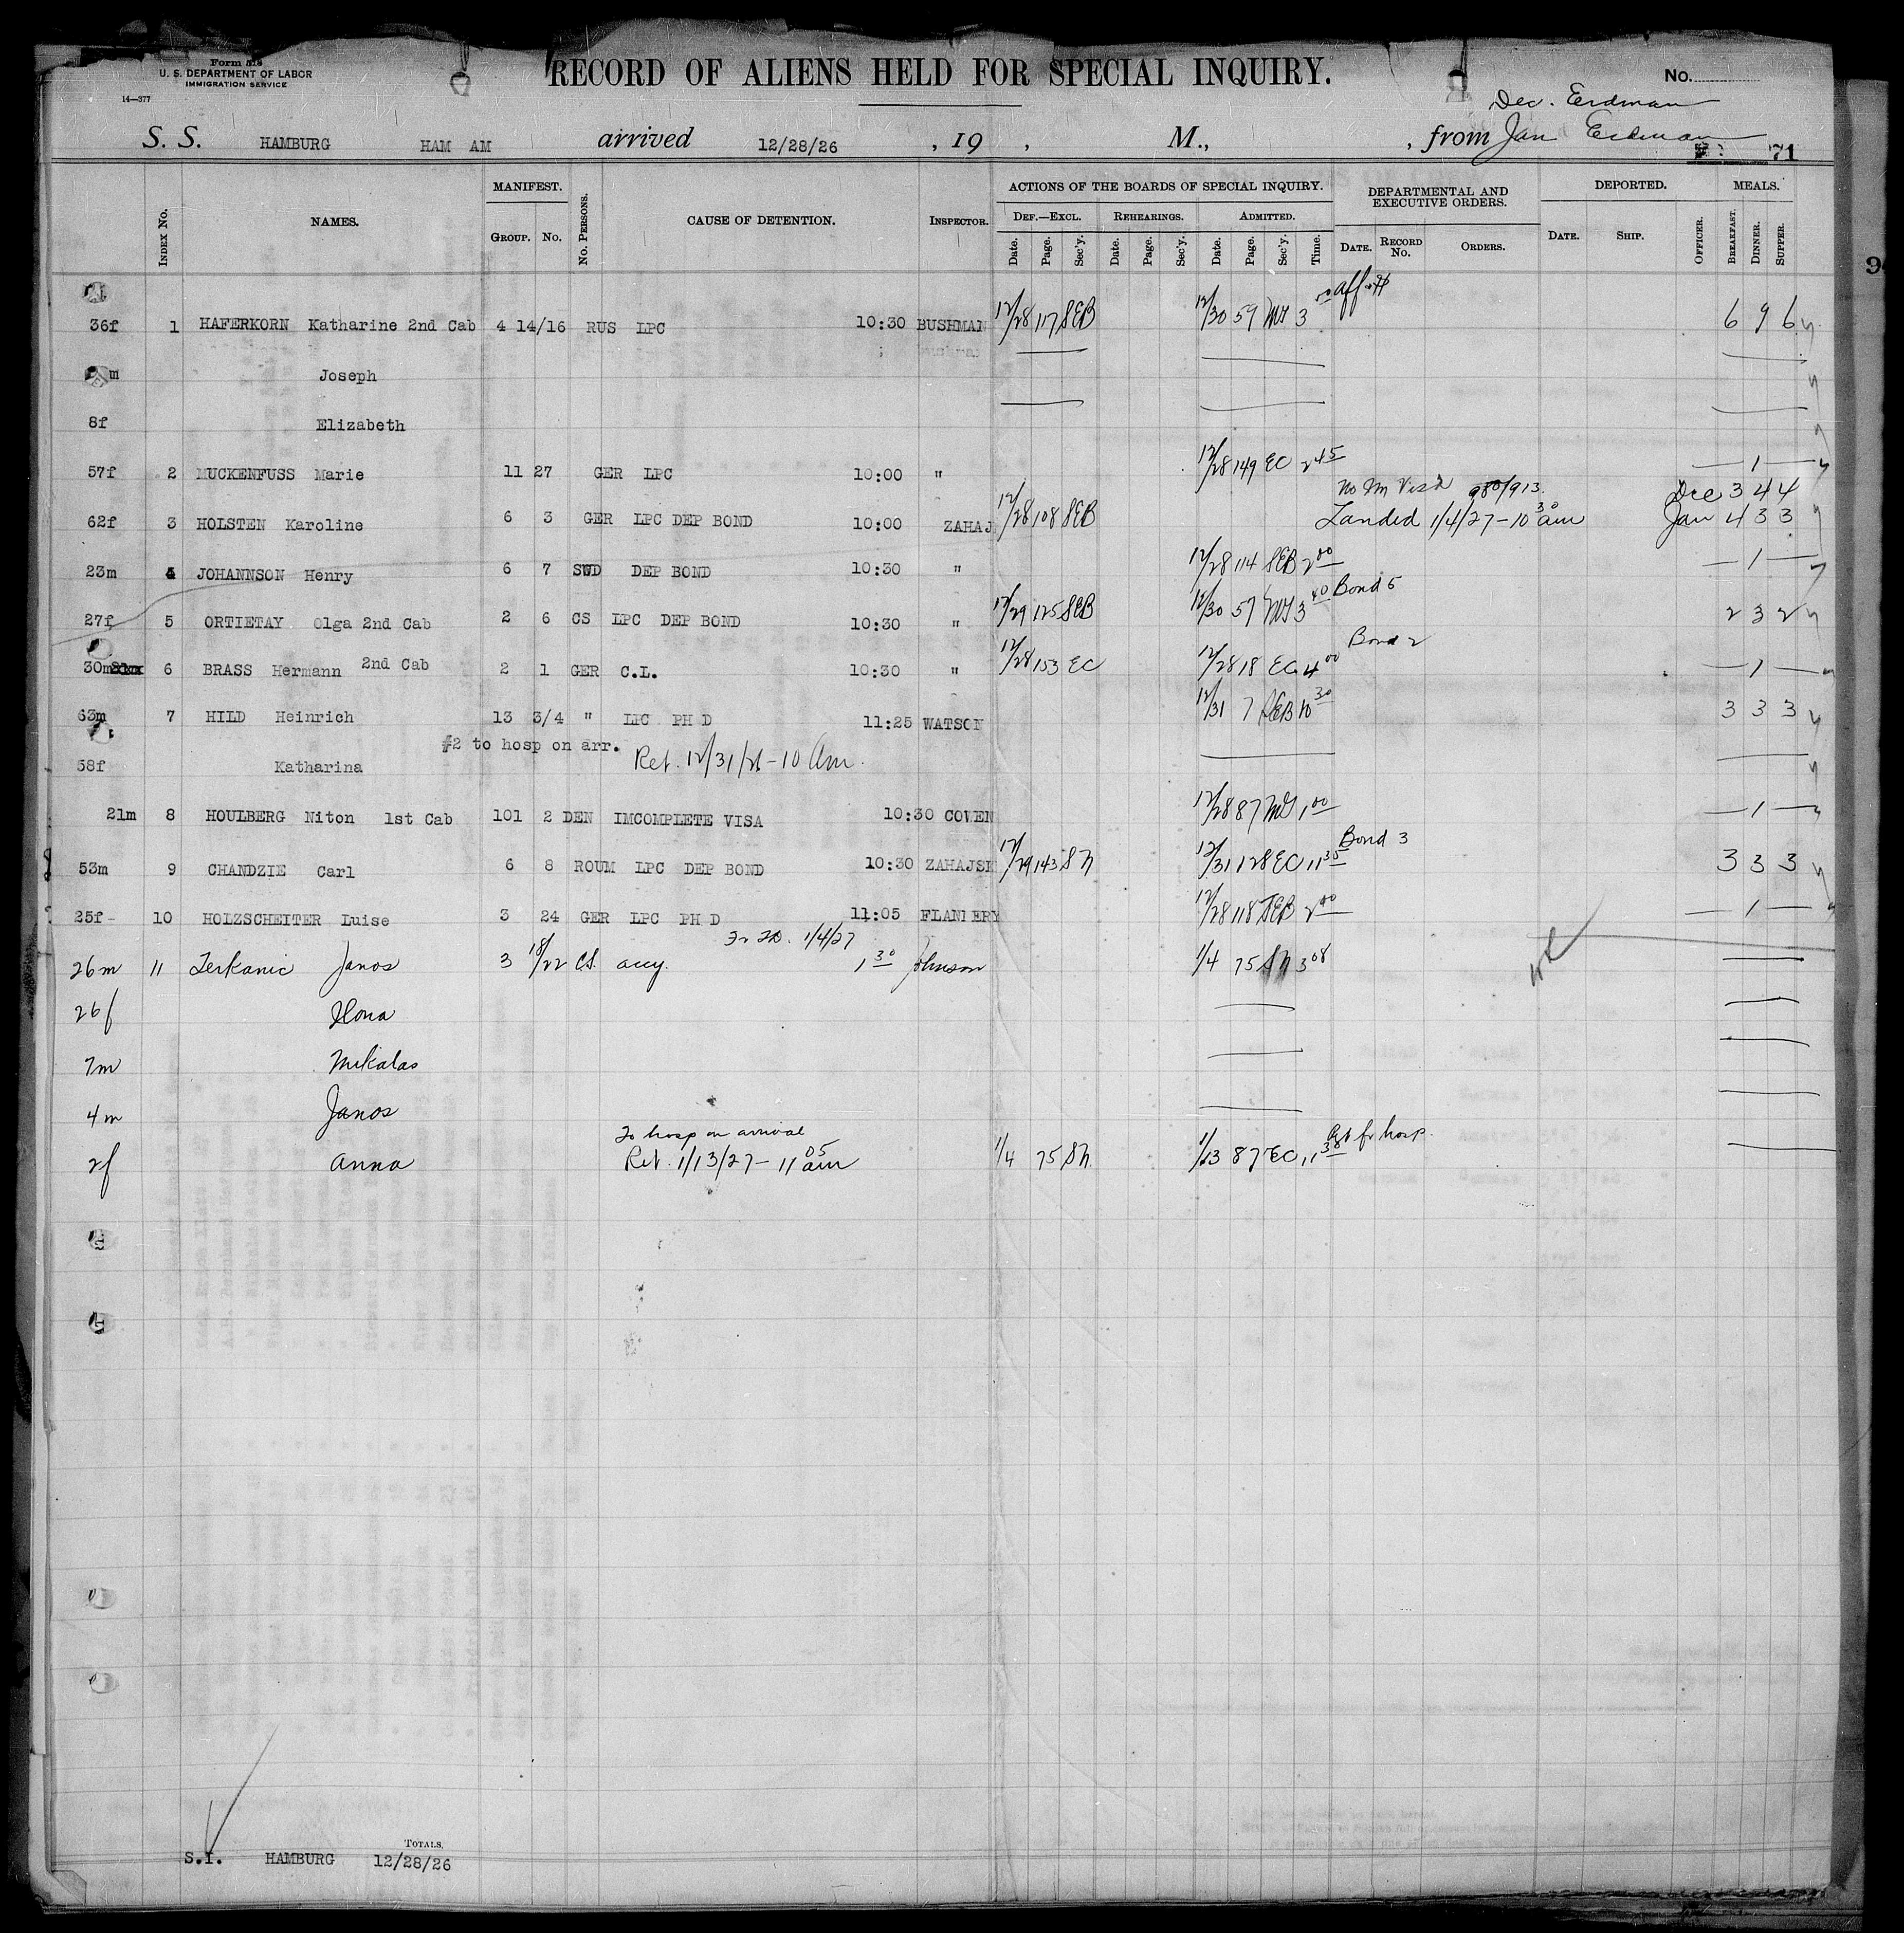 Form 518
U. S. DEPARTMENT OF LABOR
IMMIGRATION SERVICE
14—377
RECORD OF ALIENS HELD FOR SPECIAL INQUIRY.
No.
Dec. Erdman
S. S. HAMBURG HAM AM arrived 12/28/26 , 19 , M., , from Jan Erdman
71
INDEX No. NAMES. MANIFEST. GROUP. No. No. PERSONS. CAUSE OF DETENTION. INSPECTOR. ACTIONS OF THE BOARDS OF SPECIAL INQUIRY. DEF.—EXCL. Date. Page. Sec'y. REHEARINGS. Date. Page. Sec'y. ADMITTED. Date. Page. Sec'y. Time. DEPARTMENTAL AND EXECUTIVE ORDERS. DATE. RECORD No. ORDERS. DEPORTED. DATE. SHIP. OFFICER. MEALS. BREAKFAST. DINNER. SUPPER.
9
36f 1 HAFERKORN Katharine 2nd Cab 4 14/16 RUS LPC 10:30 BUSHMAN 12/28 117 SEB 12/30 57 3 00 6 9 6
m Joseph
8f Elizabeth
57f 2 MUCKENFUSS Marie 11 27 GER LPC 10:00 " 12/28 149 EC 2 45 — 1 —
980/913. Dec 3 4 4
62f 3 HOLSTEN Karoline 6 3 GER LPC DEP BOND 10:00 ZAHAJ 12/28 108 SEB Landed 1/4/27 - 10 30 am Jan 4 3 3
23m 4 JOHANNSON Henry 6 7 SWD DEP BOND 10:30 " 12/28 114 SEB 2 00 — 1 —
27f 5 ORTIETAY Olga 2nd Cab 2 6 CS LPC DEP BOND 10:30 " 12/29 125 SEB 12/30 57 3 40 Bond 5 2 3 2
30m 6 BRASS Hermann 2nd Cab 2 1 GER C.L. 10:30 " 12/28 153 EC 12/28 18 EC 4 00 Bond 2 — 1 —
63m 7 HILD Heinrich 13 3/4 " LPC PH D 11:25 WATSON 12/31 7 SEB 10 30 3 3 3
#2 to hosp on arr.
58f Katharina Ret. 12/31/26 - 10 am.
21m 8 HOULBERG Niton 1st Cab 101 2 DEN IMCOMPLETE VISA 10:30 COWEN 12/28 87 1 00 — 1 —
53m 9 CHANDZIE Carl 6 8 ROUM LPC DEP BOND 10:30 ZAHAJSK 12/29 143 SN 12/31 128 EC 11 35 Bond 3 3 3 3
25f- 10 HOLZSCHEITER Luise 3 24 GER LPC PH D 11:05 FLANNERY 12/28 118 SEB 2 00 — 1 —
1/4/27
26m 11 Terkanic Janos 3 18/22 CS. accy. 1 30 Johnson 1/4 75 SN 3 08
26f Ilona
7m Mikalas
4m Janos
To hosp on arrival
2f Anna Ret. 1/13/27 - 11 05 am 1/4 75 SN. 1/13 87 EC fr hosp.
TOTALS.
S.I. HAMBURG 12/28/26